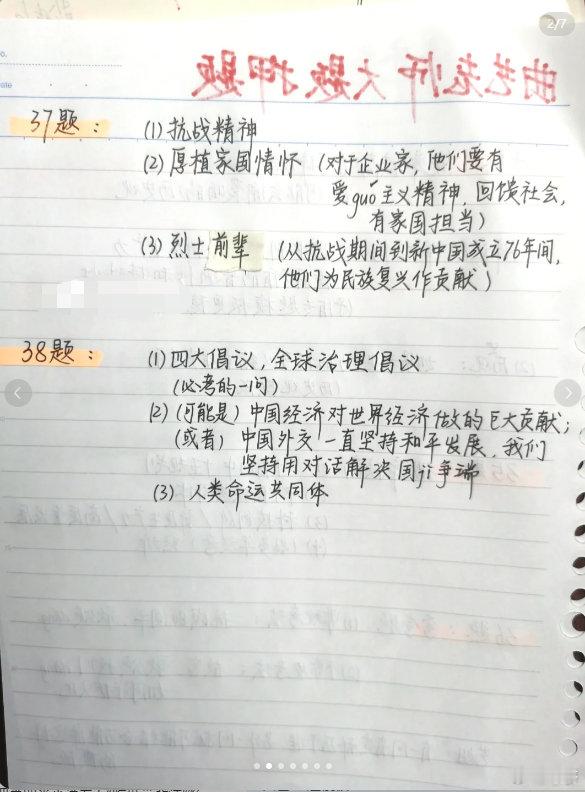 2/7
曲艺老师大题押题
37题：
(1) 抗战精神
(2) 厚植家国情怀（对于企业家，他们要有
爱guó主义精神，回馈社会，
有家国担当）
(3) 烈士前辈（从抗战期间到新中国成立76年间，
他们为民族复兴作贡献）
38题：
(1) 四大倡议，全球治理倡议
（必考的一问）
(2)（可能是）中国经济对世界经济做的巨大贡献；
（或者）中国外交一直坚持和平发展，我们
坚持用对话解决国jì争端
(3) 人类命运共同体